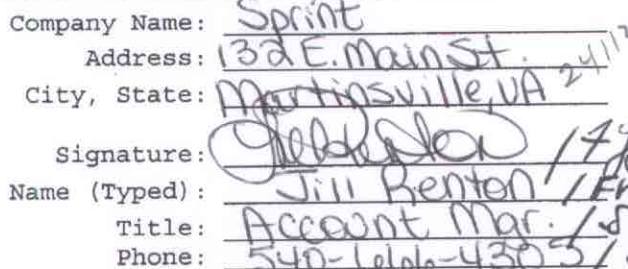 Company Name: Sprint
Address: 132 E. Main St.
City, State: Martinsville, VA 24112
Signature:
Name (Typed): Jill Renton /
Title: Account Mgr. /
Phone: 540-666-4305 /